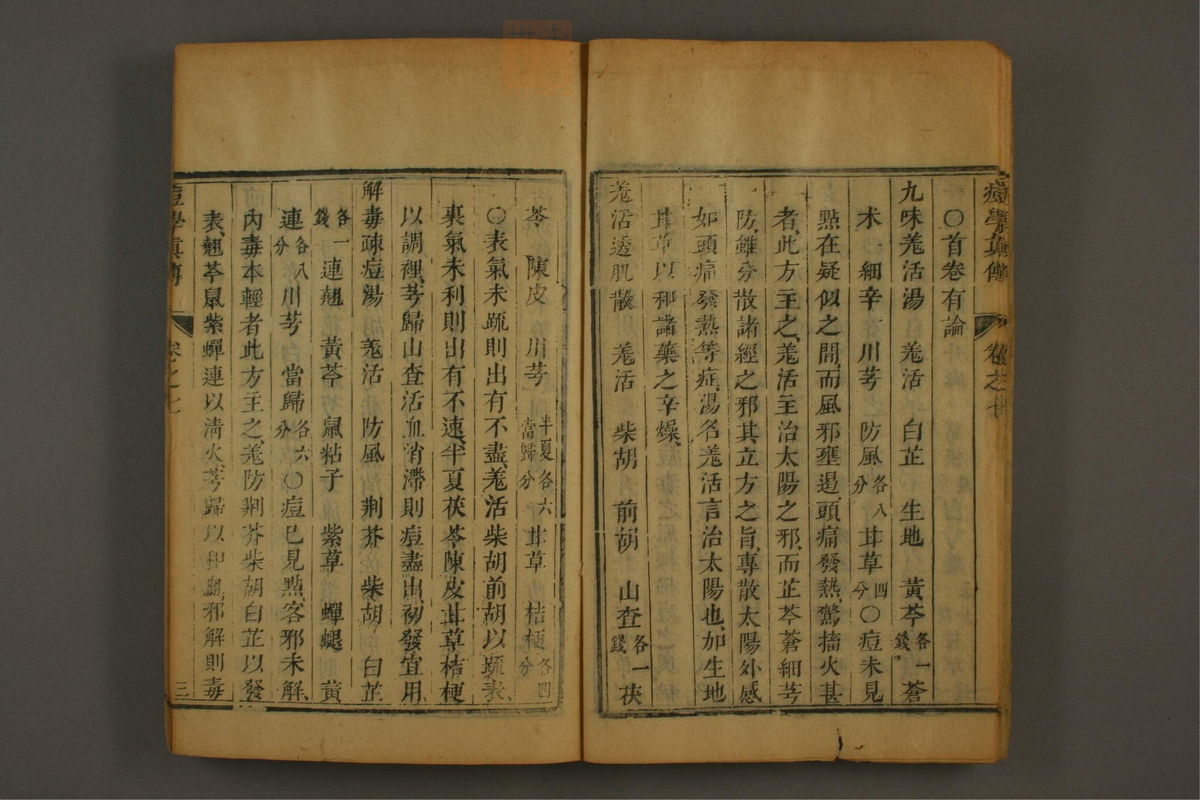 痘學真傳　卷之七
〇首卷有論
九味羗活湯　羗活　白芷　生地　黃芩各一錢　蒼
术　細辛　川芎　防風各八分　甘草四分　〇痘未見
點在疑似之間而風邪壅遏頭痛發熱驚搐火甚
者此方主之羗活主治太陽之邪而芷芩蒼細芎
防雖分散諸經之邪其立方之旨專散太陽外感
如頭痛發熱等症湯名羗活言治太陽也加生地
甘草以和諸藥之辛燥
羗活透肌散　羗活　柴胡　前胡　山查各一錢　茯
苓　陳皮　川芎　半夏　當歸各六分　甘草　桔梗各四分
〇表氣未疏則出有不盡羗活柴胡前胡以疏表
裏氣未利則出有不速半夏茯苓陳皮甘草桔梗
以調裡芎歸山查活血消滯則痘盡出初發宜用
解毒疎痘湯　羗活　防風　荆芥　柴胡　白芷
各一錢　連翹　黃芩　鼠粘子　紫草　蟬蛻　黃
連各八分　川芎　當歸各六分　〇痘已見點客邪未解
內毒本輕者此方主之羗防荆芥柴胡白芷以發
表翹芩鼠紫蟬連以清火芎歸以和血邪解則毒
痘學真傳　卷之七　三